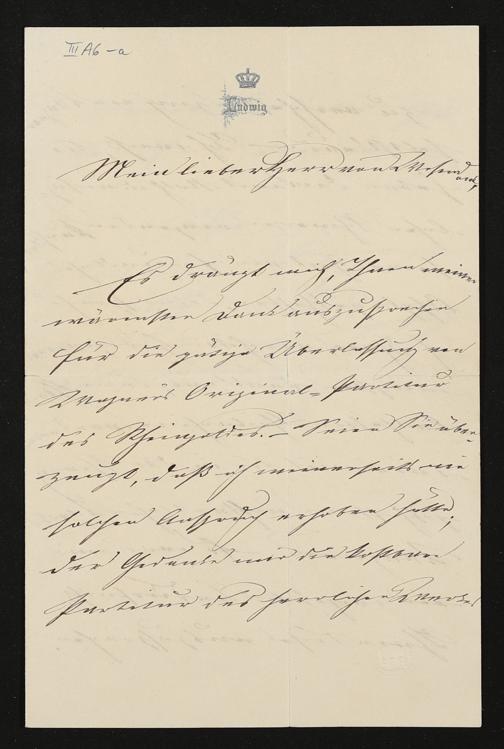 III A6 -a
Ludwig
Mein lieber Herr von Wesendonk,
Es drängt mich, Ihnen meinen
wärmsten Dank auszusprechen
für die gütige Überlassung von
Wagners Original-Partitur
des Rheingoldes. - Seien Sie über-
zeugt, daß ich meinerseits nie
solchen Anspruch erhoben hätte;
der Gedanke mir die kostbare
Partitur des herrlichen Werkes